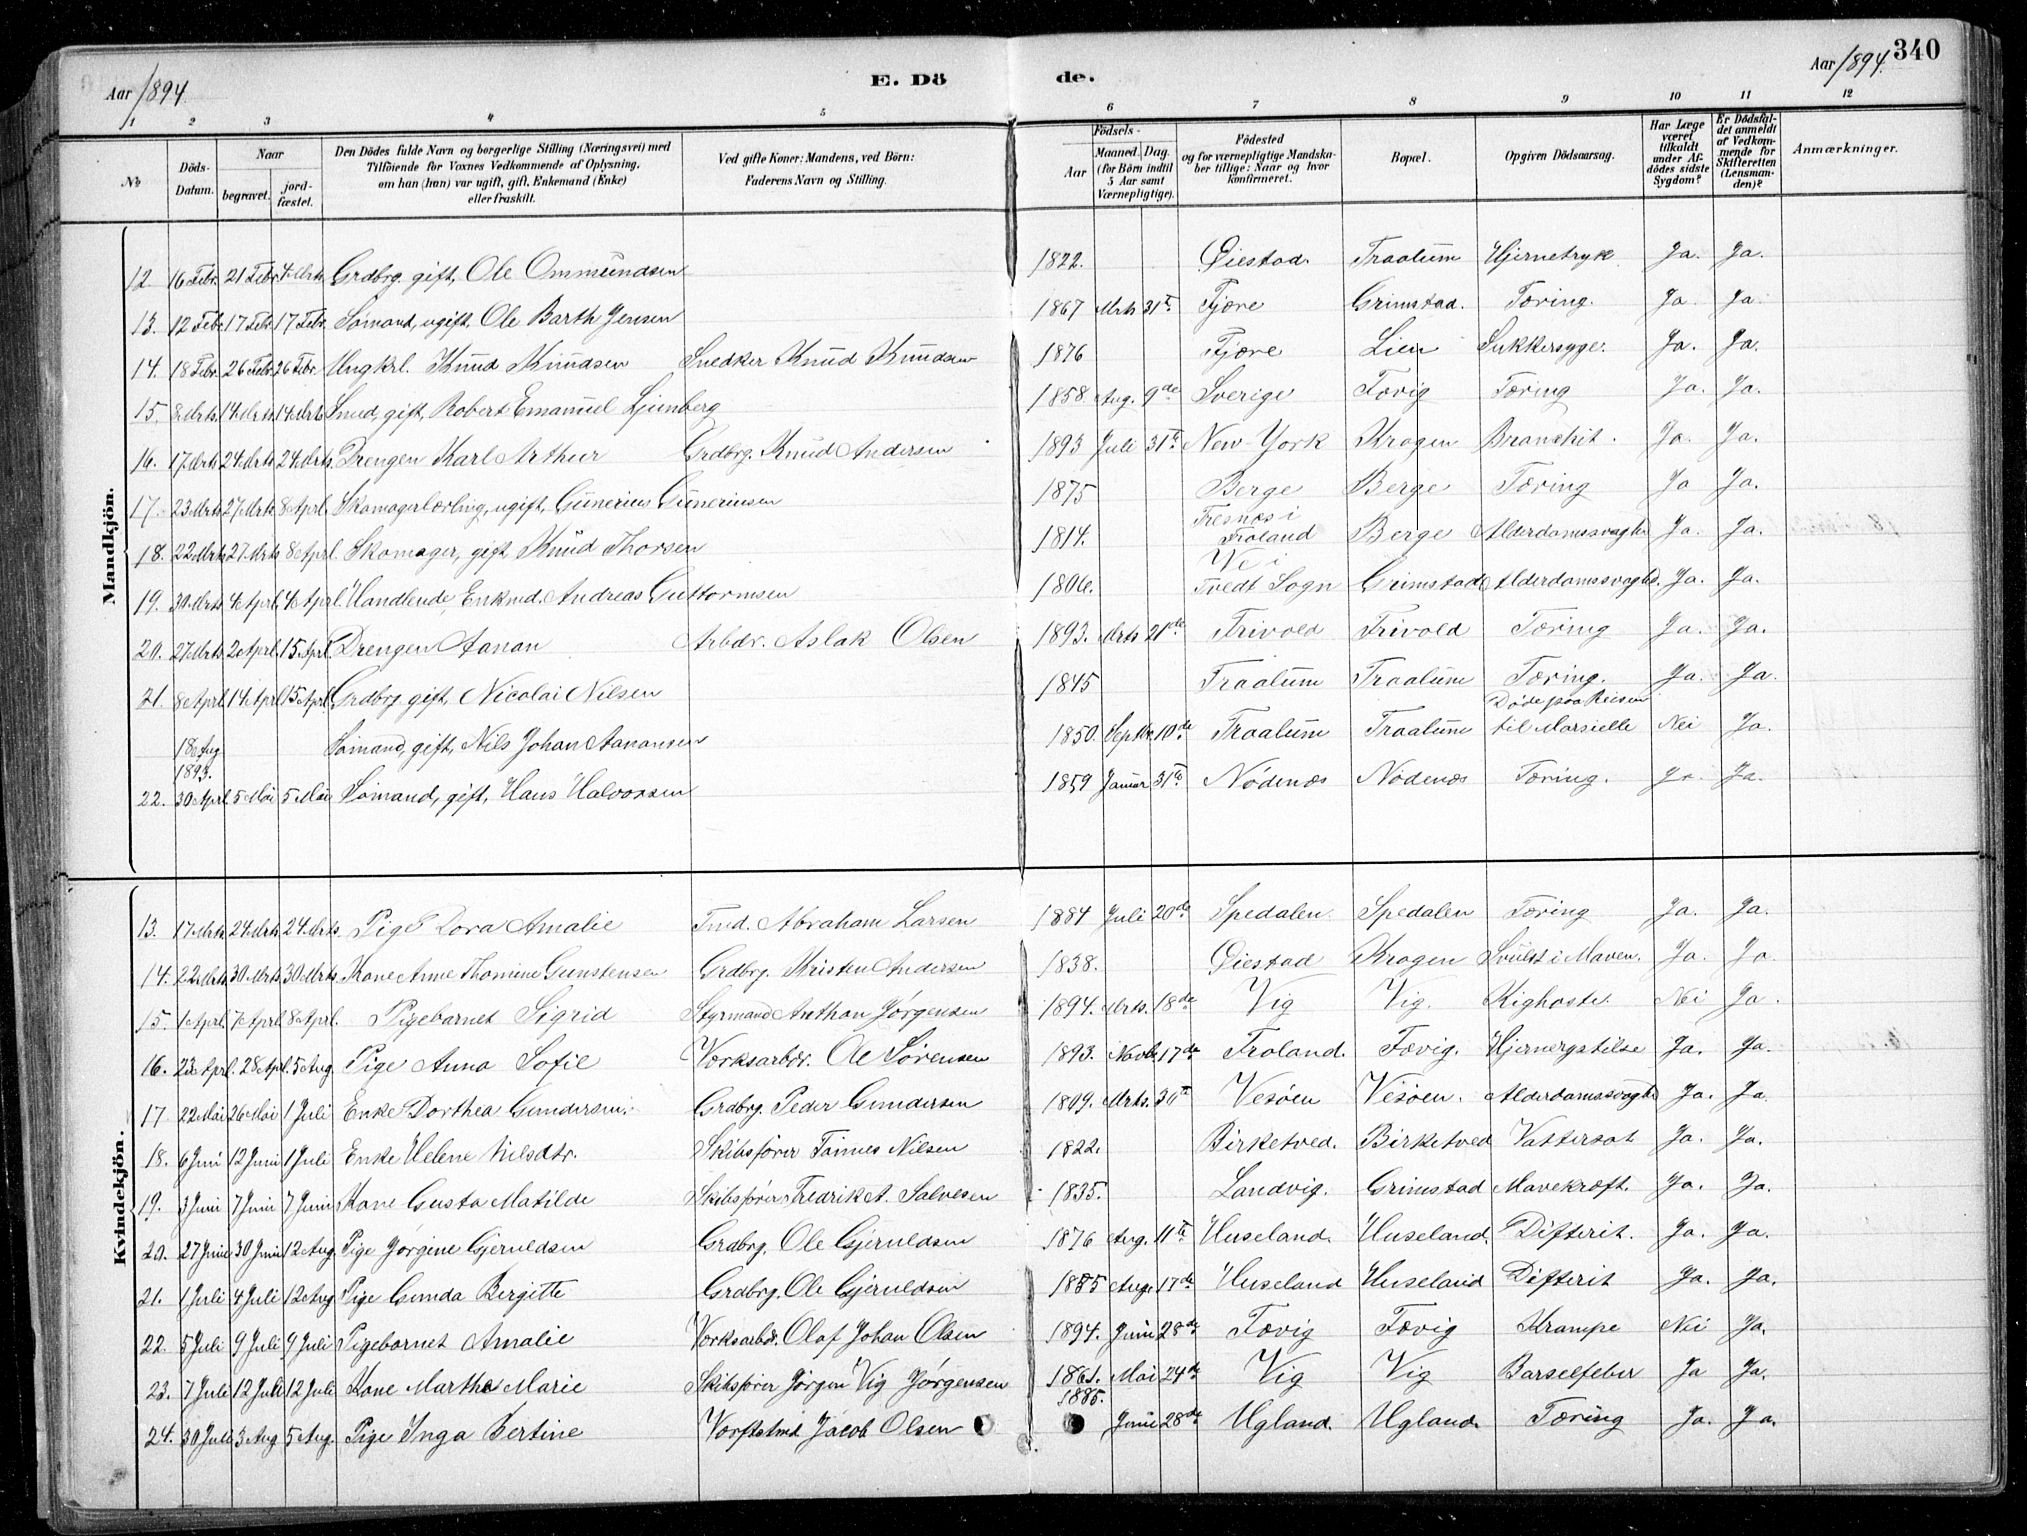 Aar 1894. E. Dö de. Aar 1894. 340
1 2 3 4 5 6 7 8 9 10 11 12
№ Döds-Datum. Naar begravet. jordfæstet. Den Dödes fulde Navn og borgerlige Stilling (Næringsvei) med Tilföiende for Voxnes Vedkommende af Oplysning, om han (hun) var ugift, gift, Enkemand (Enke) eller fraskilt. Ved gifte Koner: Mandens, ved Börn: Faderens Navn og Stilling. Födsels- Aar Maaned. Dag. (for Börn indtil 5 Aar samt Værnepligtige). Födested og for værnepligtige Mandskaber tillige: Naar og hvor konfirmeret. Bopæl. Opgiven Dödsaarsag. Har Læge været tilkaldt under Afdödes sidste Sygdom? Er Dödsfaldet anmeldt af Vedkommende for Skifteretten (Lensmanden)? Anmærkninger.
Mandkjön.
12. 16 Febr. 21 Febr. 4 Mrts. Grdbrg. gift, Ole Ommundsen 1822. Øiestad. Traalum Hjernetryk Ja. Ja.
13. 12 Febr. 17 Febr. 17 Febr. Sömand, ugift, Ole Barth Jensen 1867 Mrts 31te Fjære Grimstad. Tæring. Ja. Ja.
14. 18 Febr. 26 Febr. 26 Febr. Ungkrl. Knud Knudsen Snedker Knud Knudsen 1876 Fjære Lien Sukkersyge. Ja. Ja.
15. 8 Mrts. 14 Mrts. 14 Mrts. Smed, gift, Robert Emanuel Ljunberg 1858. Aug. 9de Sverige Fævig Tæring Ja. Ja.
16. 17 Mrts. 24 Mrts. 24 Mrts. Drengen Karl Arthur Grdbrg. Knud Andersen 1893 Juli 31te New-York Kragen Bronchit. Ja. Ja.
17. 23 Mrts. 27 Mrts. 8 Aprl. Skomagerlærling, ugift, Gunerius Gunerinsen 1875 Berge Berge Tæring Ja Ja.
18. 22 Mrts. 27 Mrts. 8 Aprl. Skomager, gift Knud Thorsen 1814. Fresnæs i Froland Berge Alderdomssvaghed Ja. Ja.
19. 30 Mrts. 4 Aprl. 4 Aprl. Handlende, Enkmd. Andreas Guttormsen 1806. We i Tvedt Sogn Grimstad Alderdomssvaghed. Ja. Ja.
20. 27 Mrts. 2 Aprl. 15 Aprl. Drengen Aanan Arbdr. Aslak Olsen 1893. Mrts 21de Frivold Frivold Tæring Ja. Ja.
21. 8 Aprl. 14 Aprl. 15 Aprl. Grdbrg. gift, Nicolai Nilsen 1845 Traalum Traalum Tæring. Ja. Ja.
18 Aug 1893. Sömand, gift, Nils Johan Aanonsen 1850. Septbr. 10de Traalum Traalum Døde paa Reisen til Marsielle Nei Ja.
22. 30 Aprl. 5 Mai 5 Mai Sömand, gift, Hans Halvorsen 1859 Januar 31te Nödenæs Nödenæs Tæring. Ja. Ja.
Kvindekjön.
13. 17 Mrts. 24 Mrts. 24 Mrts. Pige Dora Amalie Tmd. Abraham Larsen 1884 Juli 20de Spedalen Spedalen Tæring Ja. Ja.
14. 22 Mrts. 30 Mrts. 30 Mrts. Kone Anne Thomine Gunstensen Grdbrg. Kristen Andersen 1838. Øiestad Kragen Svulst i Maven. Ja. Ja
15. 1 Aprl. 7 Aprl. 8 Aprl. Pigebarnet Sigrid Styrmand Anthon Jørgensen 1894. Mrts. 18de Vig Vig. Kighoste. Nei Ja.
16. 22 Aprl. 28 Aprl. 5 Aug Pige Anna Sofie Værksarbdr. Ole Sørensen 1893. Novbr. 17de Froland. Fævig. Hjernegstilse Ja. Ja.
17. 22 Mai 26 Mai 1 Juli Enke Dorthea Gundersen. Grdbrg. Peder Gundersen 1809. Mrts. 30te Vesøen Vesøen. Alderdomssvaghd Ja. Ja.
18. 6 Juni 12 Juni 1 Juli Enke Helene Nilsdtr. Skibsfører Tønnes Nilsen 1822. Birketved. Birketved Vattersot Ja. Ja.
19. 3 Juni 7 Juni 7 Juni Kone Gusta Matilde Skibsfører Fredrik A. Salvesen 1835. Landvig. Grimstad Mavekræft. Ja. Ja.
20. 27 Juni 30 Juni 12 Aug. Pige Jørgine Gjeruldsen Grdbrg. Ole Gjeruldsen 1876 Aug. 11te Huseland. Huseland. Difterit. Ja. Ja.
21. 1 Juli 4 Juli 12 Aug Pige Gunda Bergitte Grdbrg. Ole Gjeruldsen 1885 Aug. 17de Huseland Huseland Difterit Ja. Ja.
22. 5 Juli 9 Juli 9 Juli Pigebarnet Amalie Værksarbdr. Olaf Johan Olsen 1894. Juni 28de Fævig Fævig Krampe Nei Ja.
23. 7 Juli 12 Juli 12 Juli Kone Martha Marie Skibsfører Jørgen Vig Jørgensen 1861. Mai 24de Vig Vig Barselfeber Ja Ja.
24. 30 Juli 3 Aug 5 Aug. Pige Inga Bertine Værftstmd Jacob Olsen 1885. Juni 28de Ugland. Ugland. Tæring Ja. Ja.